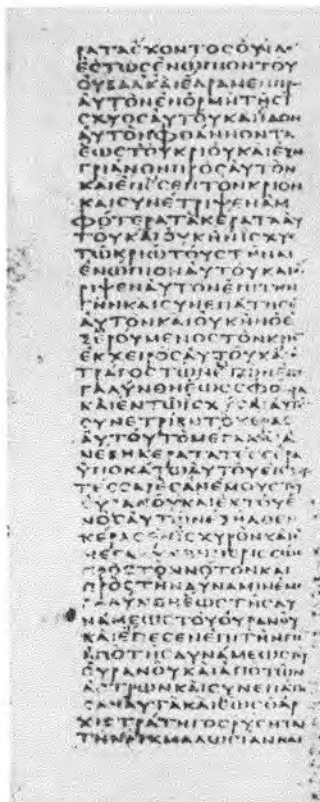 ΡΑΤΑΕΧΟΝΤΟΣΟΥΙΔ
ΕΣΤΩΣΕΝΩΠΙΟΝΤΟΥ
ΟΥΒΑΛΚΑΙΕΔΡΑΜΕΝΕΠΠΡ
ΑΥΤΟΝΕΝΟΡΜΗΤΗΣΙ
ΣΧΥΟΣΑΥΤΟΥΚΑΙΙΔΟΝ
ΑΥΤΟΝΦΘΑΝΝΟΝΤΑ
ΕΩΣΤΟΥΚΡΙΟΥΚΑΙΕΞΗ
ΓΡΙΑΝΘΗΠΡΟΣΑΥΤΟΝ
ΚΑΙΕΠΕΣΕΠΤΟΝΚΡΙΟΝ
ΚΑΙΣΥΝΕΤΡΙΨΕΝΑΜ
ΦΟΤΕΡΑΤΑΚΕΡΑΤΑΑΥ
ΤΟΥΚΑΙΟΥΚΗΝΙΣΧΥΣ
ΤΩΚΡΙΩΤΟΥΣΤΗΝΑΙ
ΕΝΩΠΙΟΝΑΥΤΟΥΚΑΙΕ
ΡΙΨΕΝΑΥΤΟΝΕΠΙΤΗΝ
ΓΗΝΚΑΙΣΥΝΕΠΑΤΗΣΕ
ΑΥΤΟΝΚΑΙΟΥΚΗΝΟΕ
ΞΕΡΟΥΜΕΝΟΣΤΟΝΚΡΙ
ΕΚΧΕΙΡΟΣΑΥΤΟΥΚΑΙΟ
ΤΡΑΓΟΣΤΩΝΕΓΩΝΕΜΕ
ΓΑΛΥΝΘΗΕΩΣΣΦΟΔΡΑ
ΚΑΙΕΝΤΩΙΣΧΥΣΑΙΑΥΤ
ΣΥΝΕΤΡΙΒΗΤΟΚΕΡΑΣ
ΑΥΤΟΥΤΟΜΕΓΑΚΑΙΑ
ΝΕΒΗΚΕΡΑΤΑΤΕΣΣΕΡΑ
ΥΠΟΚΑΤΩΑΥΤΟΥΕΙΣΤΟΥ
ΤΕΣΣΑΡΕΣΑΝΕΜΟΥΣΤΟΥ
ΟΥΡΑΝΟΥΚΑΙΕΚΤΟΥΕ
ΝΟΣΑΥΤΩΝΕΞΗΛΘΕΝ
ΚΕΡΑΣΕΝΙΣΧΥΡΟΝΚΑΙΕ
ΜΕΓΑΛΥΝΘΗΠΕΡΙΣΣΩΣ
ΠΡΟΣΤΟΝΝΟΤΟΝΚΑΙ
ΠΡΟΣΤΗΝΔΥΝΑΜΙΝΕΜΕ
ΓΑΛΥΝΘΗΕΩΣΤΗΣΔΥ
ΝΑΜΕΩΣΤΟΥΟΥΡΑΝΟΥ
ΚΑΙΕΠΕΣΕΝΕΠΙΤΗΝΓΗ
ΑΠΟΤΗΣΔΥΝΑΜΕΩΣΤΟΥ
ΟΥΡΑΝΟΥΚΑΙΑΠΟΤΩΝ
ΑΣΤΡΩΝΚΑΙΣΥΝΕΠΑΤΗ
ΣΑΝΑΥΤΑΚΑΙΕΩΣΟΑΡ
ΧΙΣΤΡΑΤΗΓΟΣΡΥΣΗΤΑΙ
ΤΗΝΑΙΧΜΑΛΩΣΙΑΝΚΑΙ